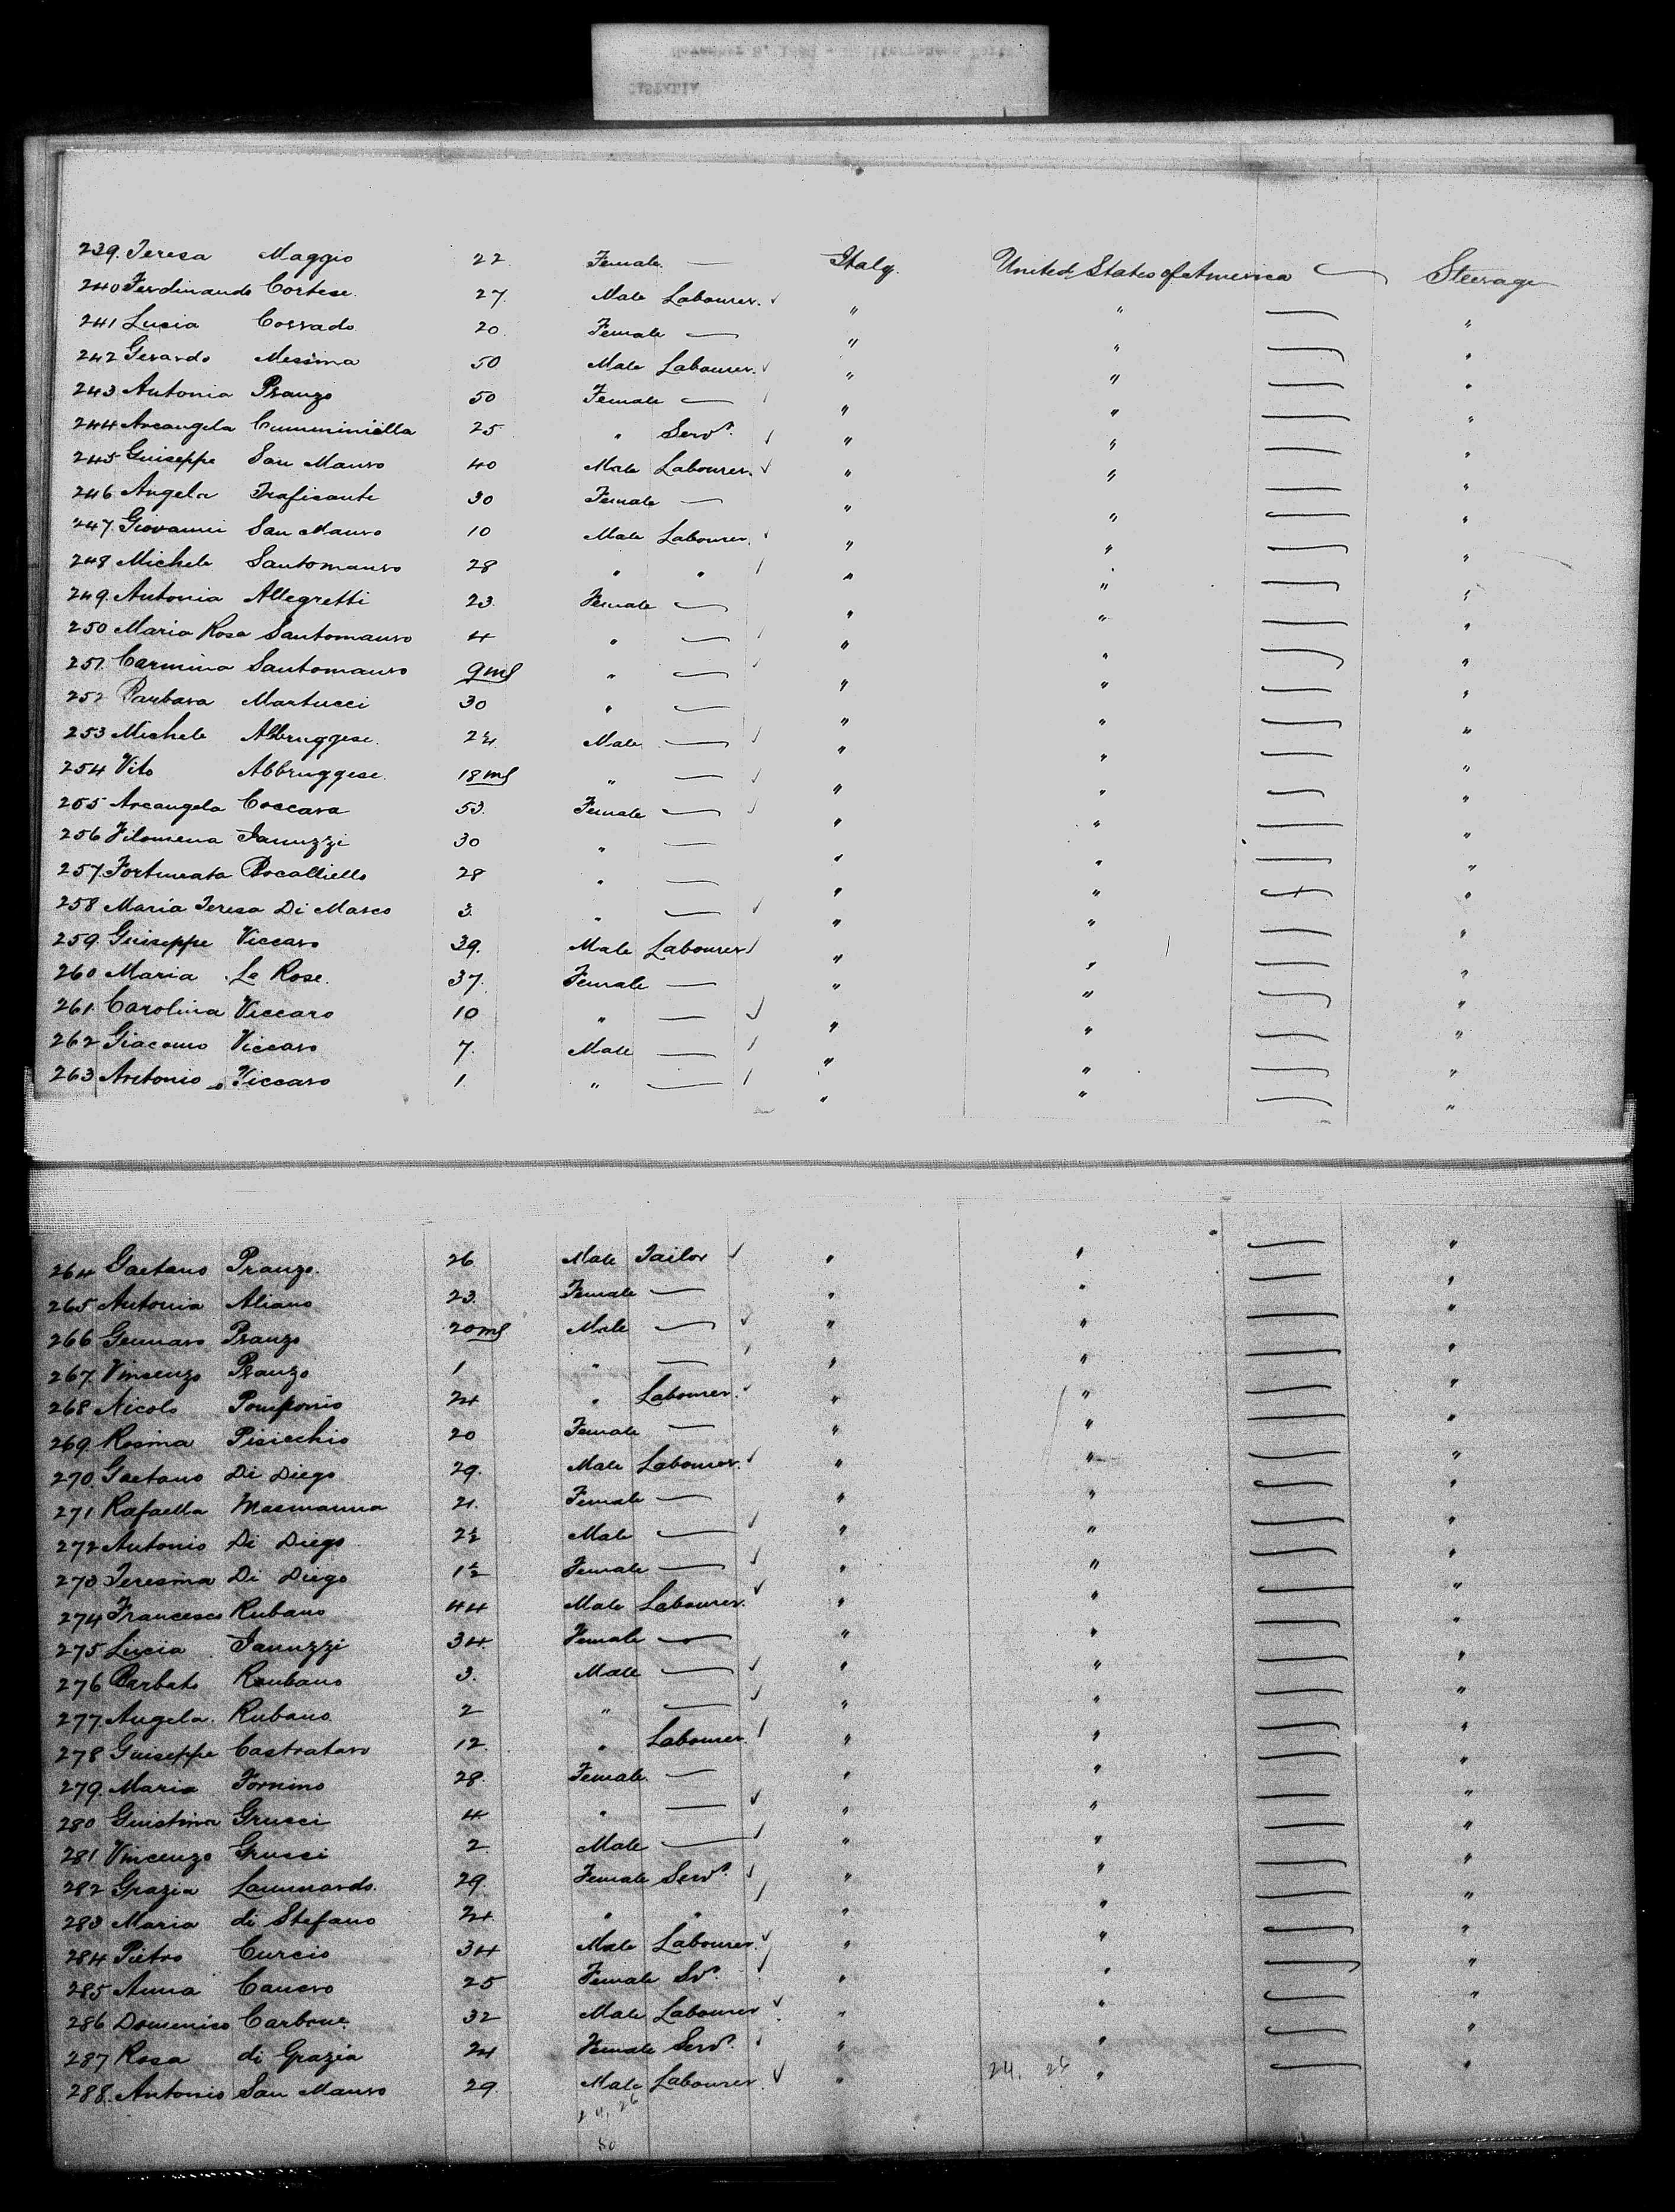 239. Teresa Maggio 22 Female — Italy. United States of America Steerage
240 Ferdinando Cortese. 27. Male Labourer. " " "
241 Lucia Corrado 20 Female — " " "
242 Gerardo Messina 50 Male Labourer. " " "
243 Antonia Pranzo 50 Female — " " "
244 Arcangela Cumminiella 25 " Servt. " " "
245 Guiseppe San Mauro 40 Male Labourer. " " "
246 Angela Traficante 30 Female — " " "
247. Giovanni San Mauro 10 Male Labourer. " " "
248 Michele Santomauro 28 " " " " "
249. Antonia Allegretti 23. Female — " " "
250 Maria Rosa Santomauro 4 " — " " "
251. Carmina Santomauro 9 ms " — " " "
252 Barbara Martucci 30 " — " " "
253 Michele Abbruggese. Male — " " "
254 Vito Abbruggese. 18 ms " — " " "
255 Arcangela Coccara 53. Female — " " "
256 Filomena Januzzi 30 " — " " "
257. Fortunata Bocalliello 28 " — " " "
258 Maria Teresa Di Marco 3. " — " " "
259. Guiseppe Viccaro 39. Male Labourer " " "
260 Maria La Rose. 37. Female — " " "
261. Carolina Viccaro 10 " — " " "
262 Giacomo Viccaro 7. Male — " " "
263 Antonio Viccaro 1. " — " " "
264 Gaetano Pranzo. 26. Male Tailor " " "
265 Antonia Aliano 23. Female — " " "
266 Gennaro Pranzo 20 ms Male — " " "
267. Vincenzo Pranzo 1 " — " " "
268 Nicolo Pomponio 24 " Labourer. " " "
269. Rosina Pisicchio 20 Female — " " "
270. Gaetano Di Diego 29. Male Labourer. " " "
271 Rafaella Masmanna 21. Female — " " "
272 Antonio Di Diego 2½ Male — " " "
273 Teresina Di Diego 1½ Female — " " "
274 Francesco Rubano 44 Male Labourer. " " "
275 Lucia Januzzi 34. Female — " " "
276 Barbato Roubano 3. Male — " " "
277. Angela. Rubano 2 " — " " "
278 Guiseppe Castrataro 12. " Labourer. " " "
279. Maria Fornino 28. Female. — " " "
280 Guistina Grusci 4 " — " " "
281 Vincenzo Grusci 2. Male — " " "
282 Grazia Lammardo. 29. Female Servt. " " "
283 Maria di Stefano 24. " " " " "
284 Pietro Curcio 34 Male Labourer. " " "
285 Anna Canero 25 Female Svt. " " "
286 Domenico Carbone. 32 Male Labourer " " "
287 Rosa di Grazia 24 Female Servt. " " "
288. Antonio San Mauro 29. Male Labourer. " 24. 26 " "
24, 26
50